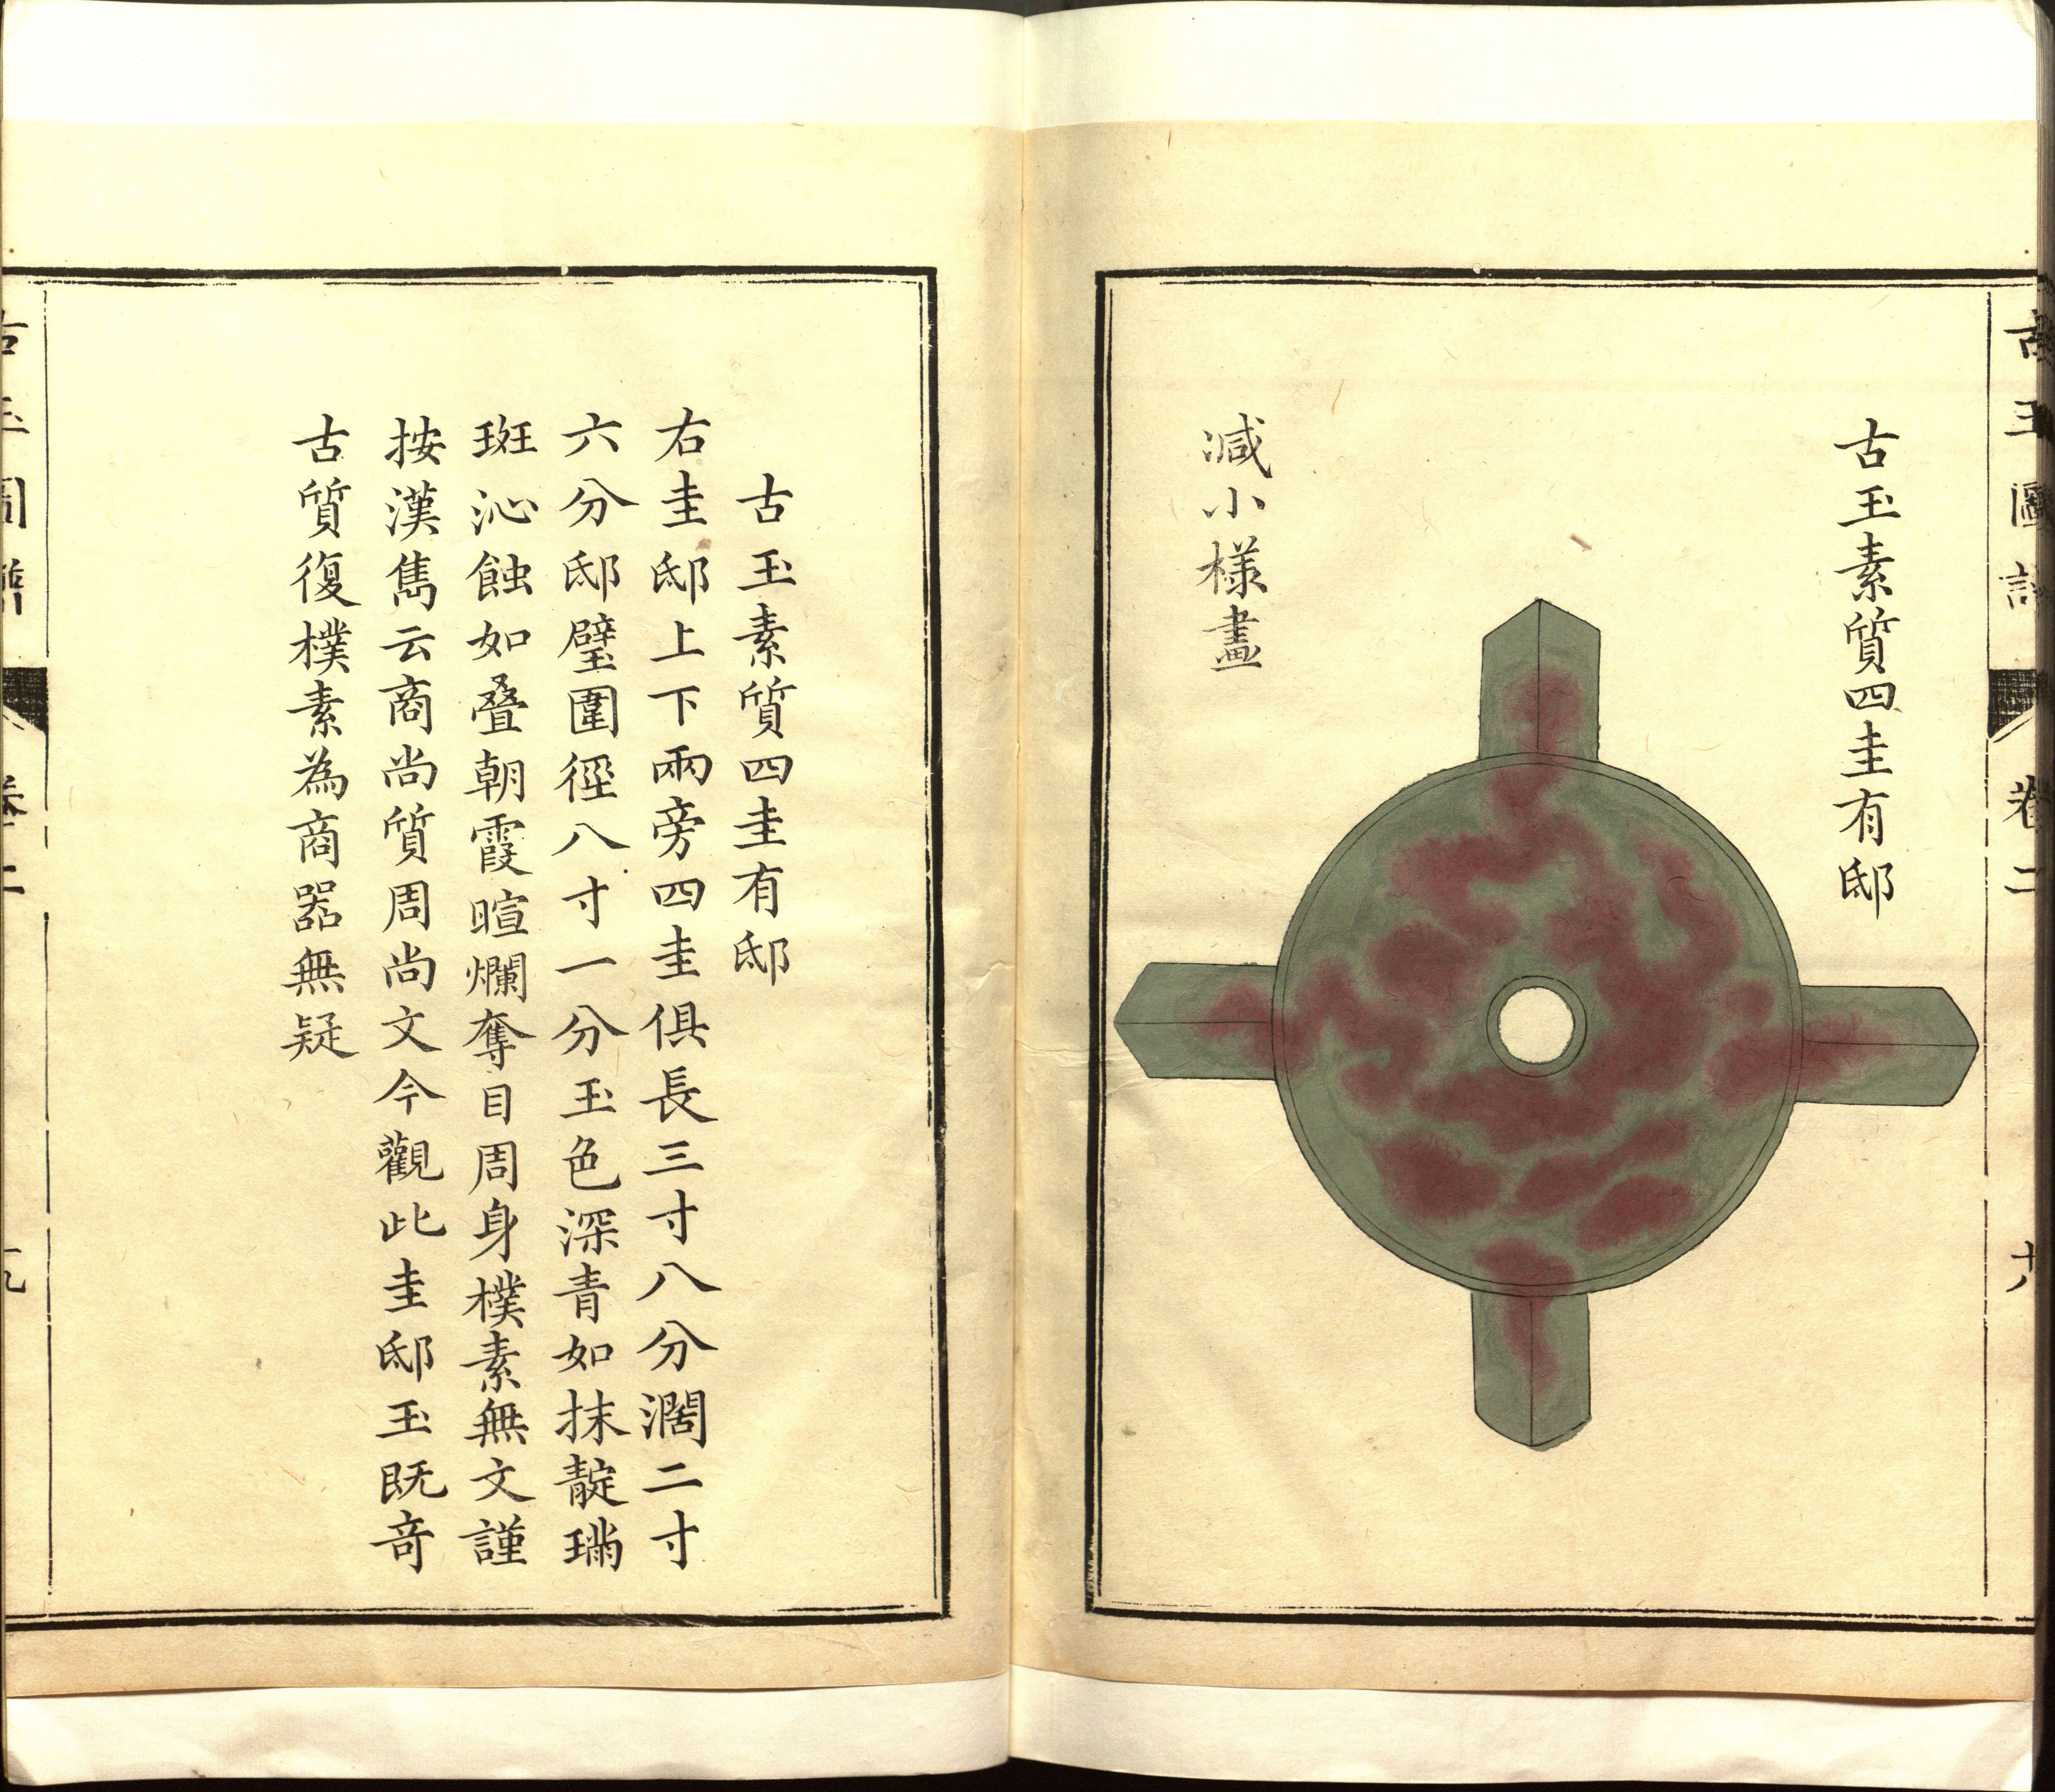 古玉圖譜 卷二 十八
古玉素質四圭有邸
減小樣畫
古玉素質四圭有邸
右圭邸上下兩旁四圭俱長三寸八分濶二寸
六分邸璧圍徑八寸一分玉色深青如抹靛璊
斑沁蝕如叠朝霞暄爛奪目周身樸素無文謹
按漢雋云商尚質周尚文今觀此圭邸玉既竒
古質復樸素為商器無疑
古玉圖譜 卷二